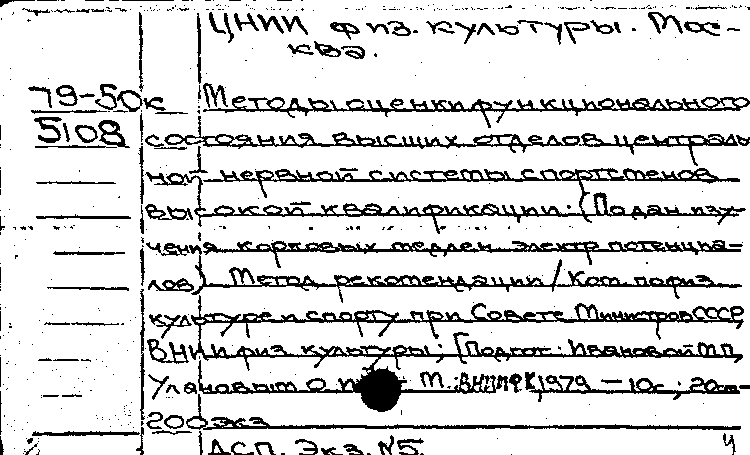 ЦНИИ физ. культуры. Мос-
ква.
79-50к Методы оценки функционального
5108 состояния высших отделов централь
ной нервной системы спортсменов
высокой квалификации: (По дан изу-
чения корковых медлен электр потенциа-
лов) Метод рекомендации / Ком. по физ
культуре и спорту при Совете Министров СССР,
ВНИИ физ культуры; [Подгот: Ивановой М П,
Улановым О М. :ВНИИФК,1979 — 10с; 20см-
200 экз
ДСП. Экз. №5. ч